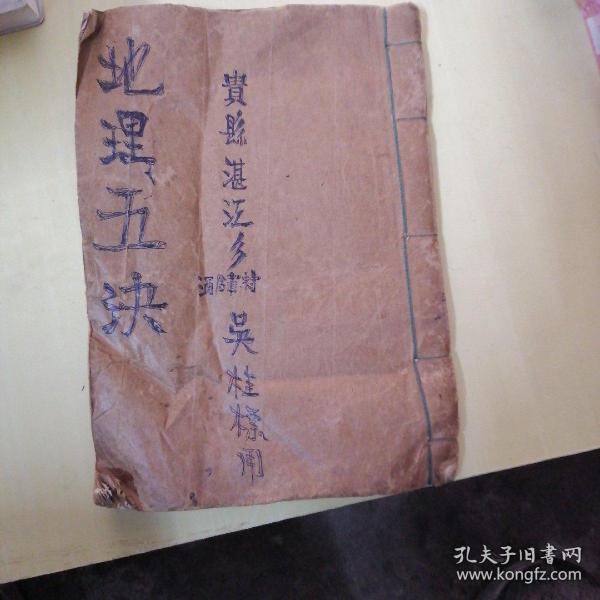 地理五决
貴縣湛江乡
村
吳桂標用
孔夫子旧书网
www.kongfz.com